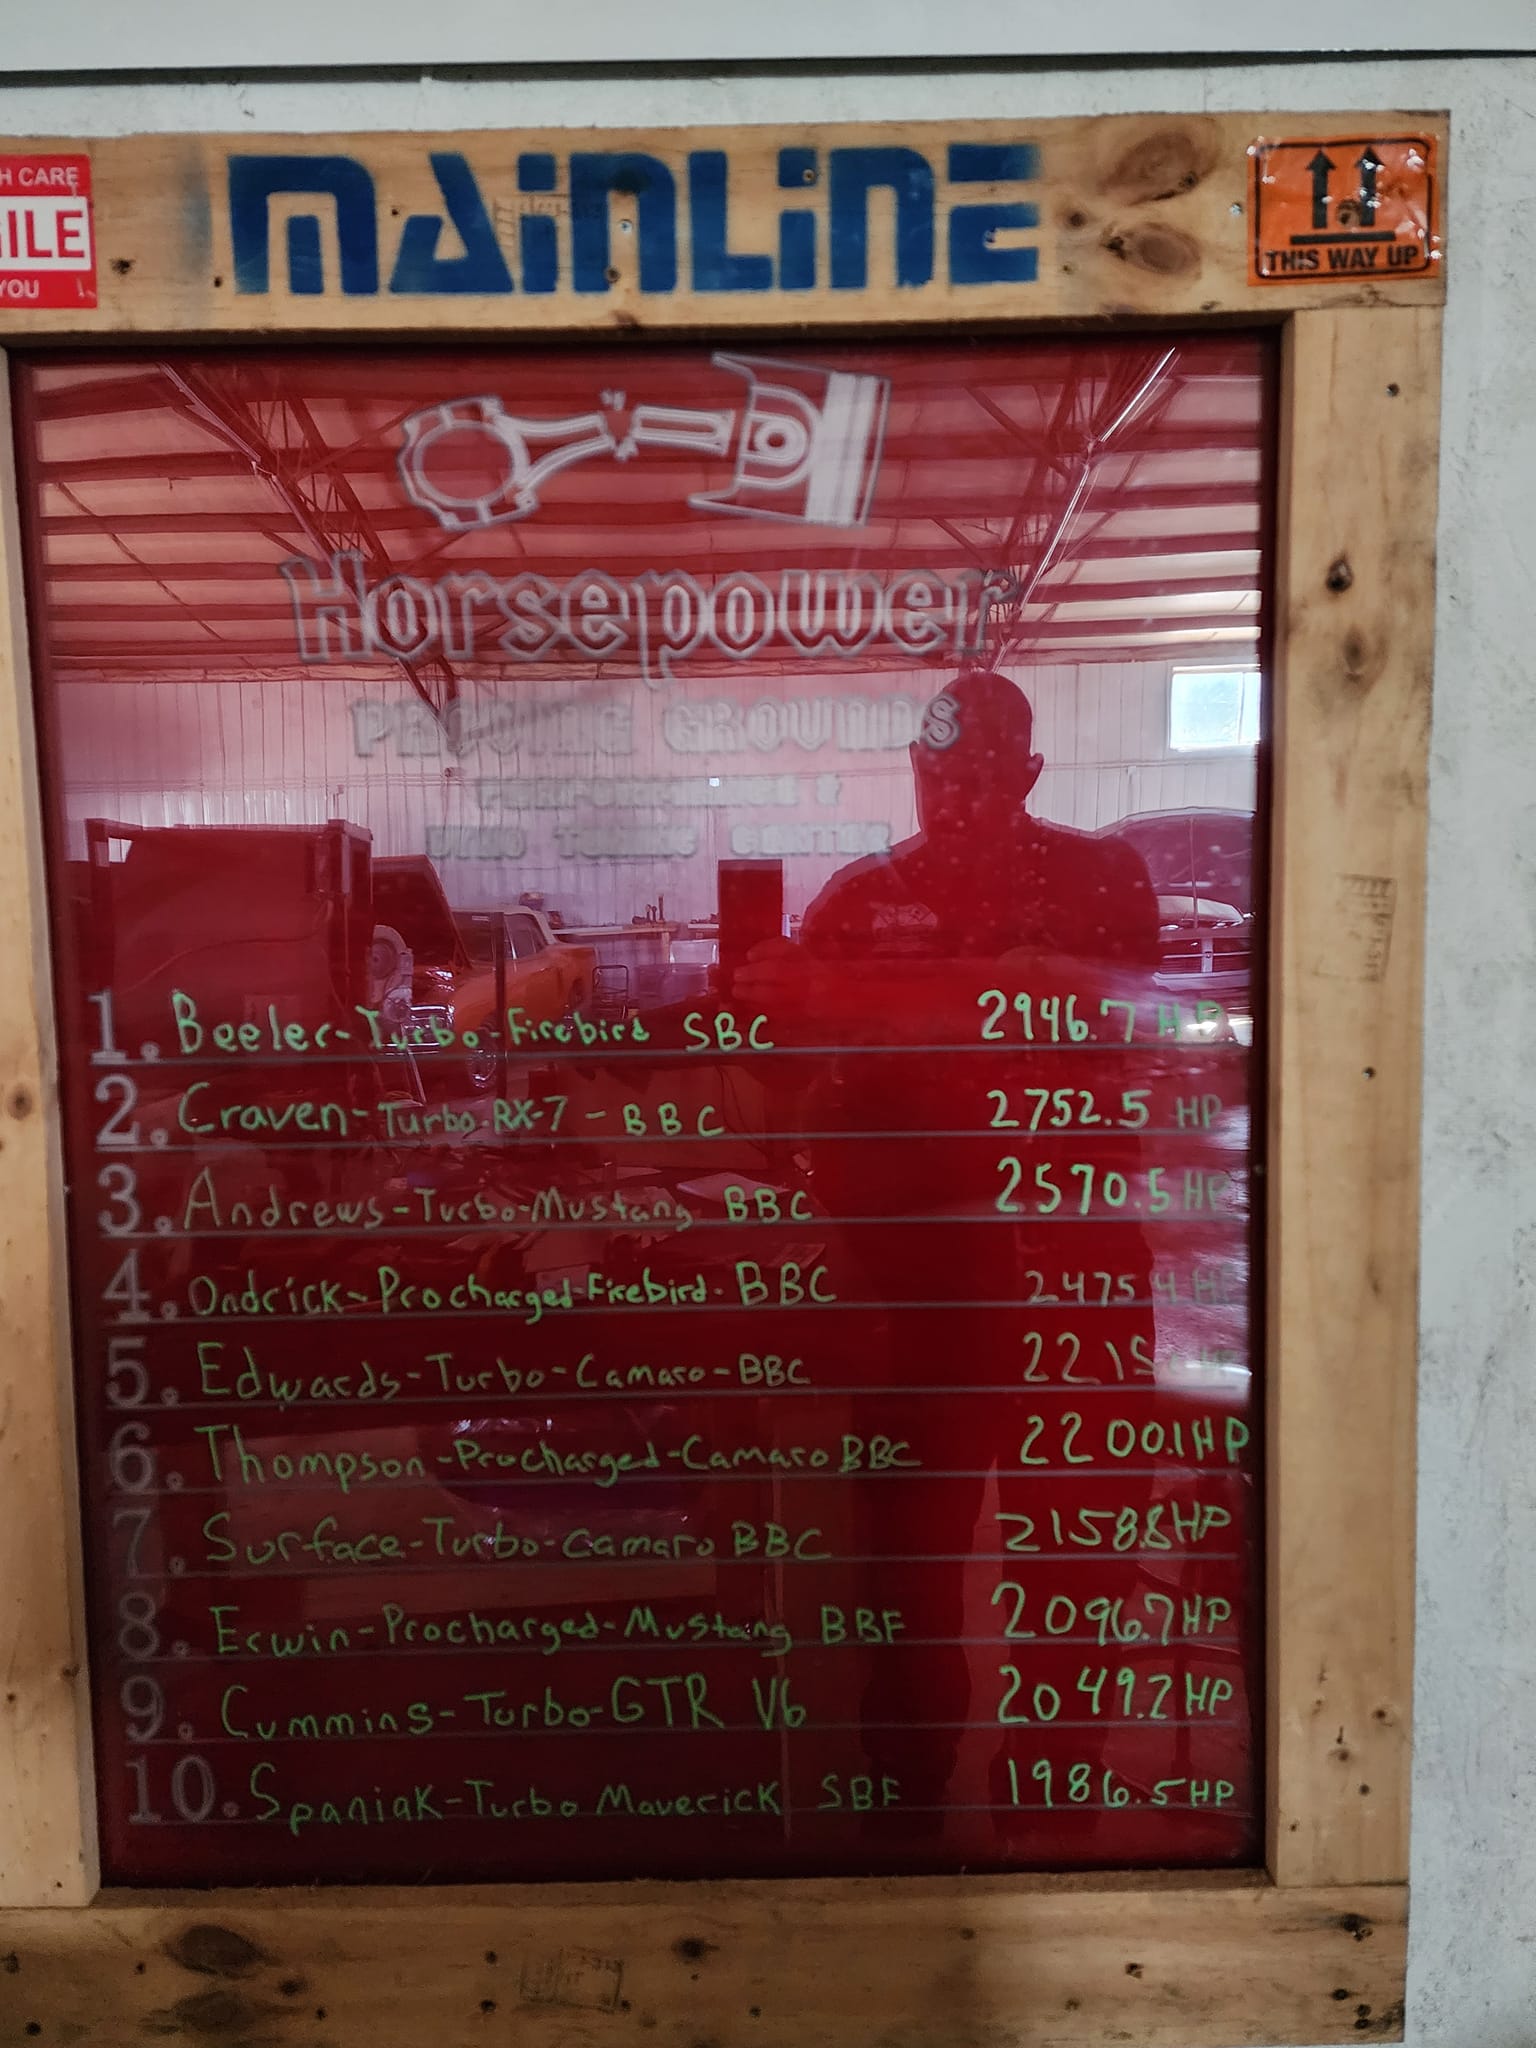 H CARE
ILE
YOU
MAiNLiNE
THIS WAY UP
Horsepower
PROVING GROUNDS
PERFORMANCE &
DYNO TUNING CENTER
1. Beeler-Turbo-Firebird SBC 2946.7 HP
2. Craven-Turbo-RX-7-BBC 2752.5 HP
3. Andrews-Turbo-Mustang BBC 2570.5 HP
4. Ondrick-Procharged-Firebird-BBC 2475.4 HP
5. Edwards-Turbo-Camaro-BBC
6. Thompson-Procharged-Camaro BBC 2200.1 HP
7. Surface-Turbo-Camaro BBC 2158.8 HP
8. Erwin-Procharged-Mustang BBF 2096.7 HP
9. Cummins-Turbo-GTR V6 2049.2 HP
10. Spaniak-Turbo Maverick SBF 1986.5 HP